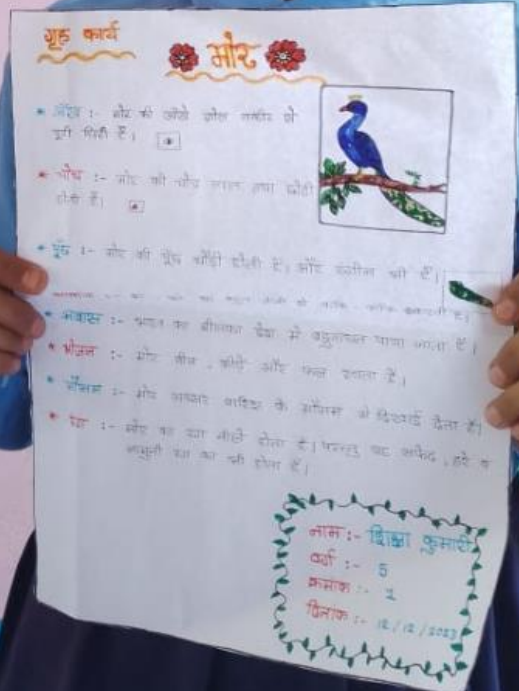 गृह कार्य
मोर
* आँख :- मोर की आँखे गोल
पूरी होती हैं।
* चोंच :- मोर की चोंच तथा छोटी
होती हैं।
* पूँछ :- मोर की पूँछ चौड़ी होती हैं। और रंगीन भी हैं।
* आवास :- भारत का श्रीलंका देश में बहुतायत पाया जाता हैं।
* भोजन :- मोर बीज, कीड़े और फल खाता हैं।
* मौसम :- मोर अक्सर बारिश के मौसम में दिखाई देता हैं।
* रंग :- मोर का रंग नीले होता हैं। परन्तु यह सफेद, हरे व
जामुनी रंग का भी होता हैं।
नाम :- शिक्षा कुमारी
वर्ग :- 5
क्रमांक :- 2
दिनांक :- 12/12/2023